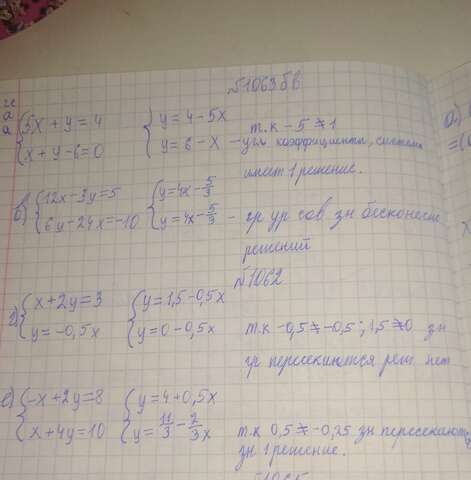 №1063бв
{5x + y = 4 {y = 4 - 5x т.к -5 ≠ 1
{x + y - 6 = 0 {y = 6 - x - угл. коэффициенты, система
имеет 1 решение.
б) {12x - 3y = 5 {y = 4x - 5/3
{6y - 24x = -10 {y = 4x - 5/3 - гр ур сов зн бесконечн
решений
№1062
г) {x + 2y = 3 {y = 1,5 - 0,5x
{y = -0,5x {y = 0 - 0,5x т.к -0,5 ≠ -0,5; 1,5 ≠ 0 зн
гр пересекаются реш. нет
е) {-x + 2y = 8 {y = 4 + 0,5x
{x + 4y = 10 {y = 11/3 - 2/3x т.к 0,5 ≠ -0,25 зн пересекают
зн 1 решение.
а)
=(